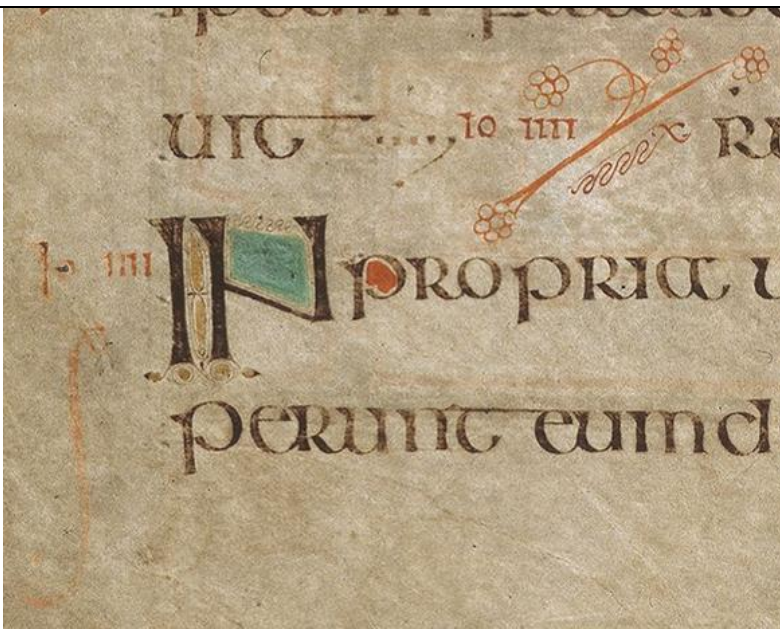 uit io iiii
Io iiii IN propria u
perunt eum